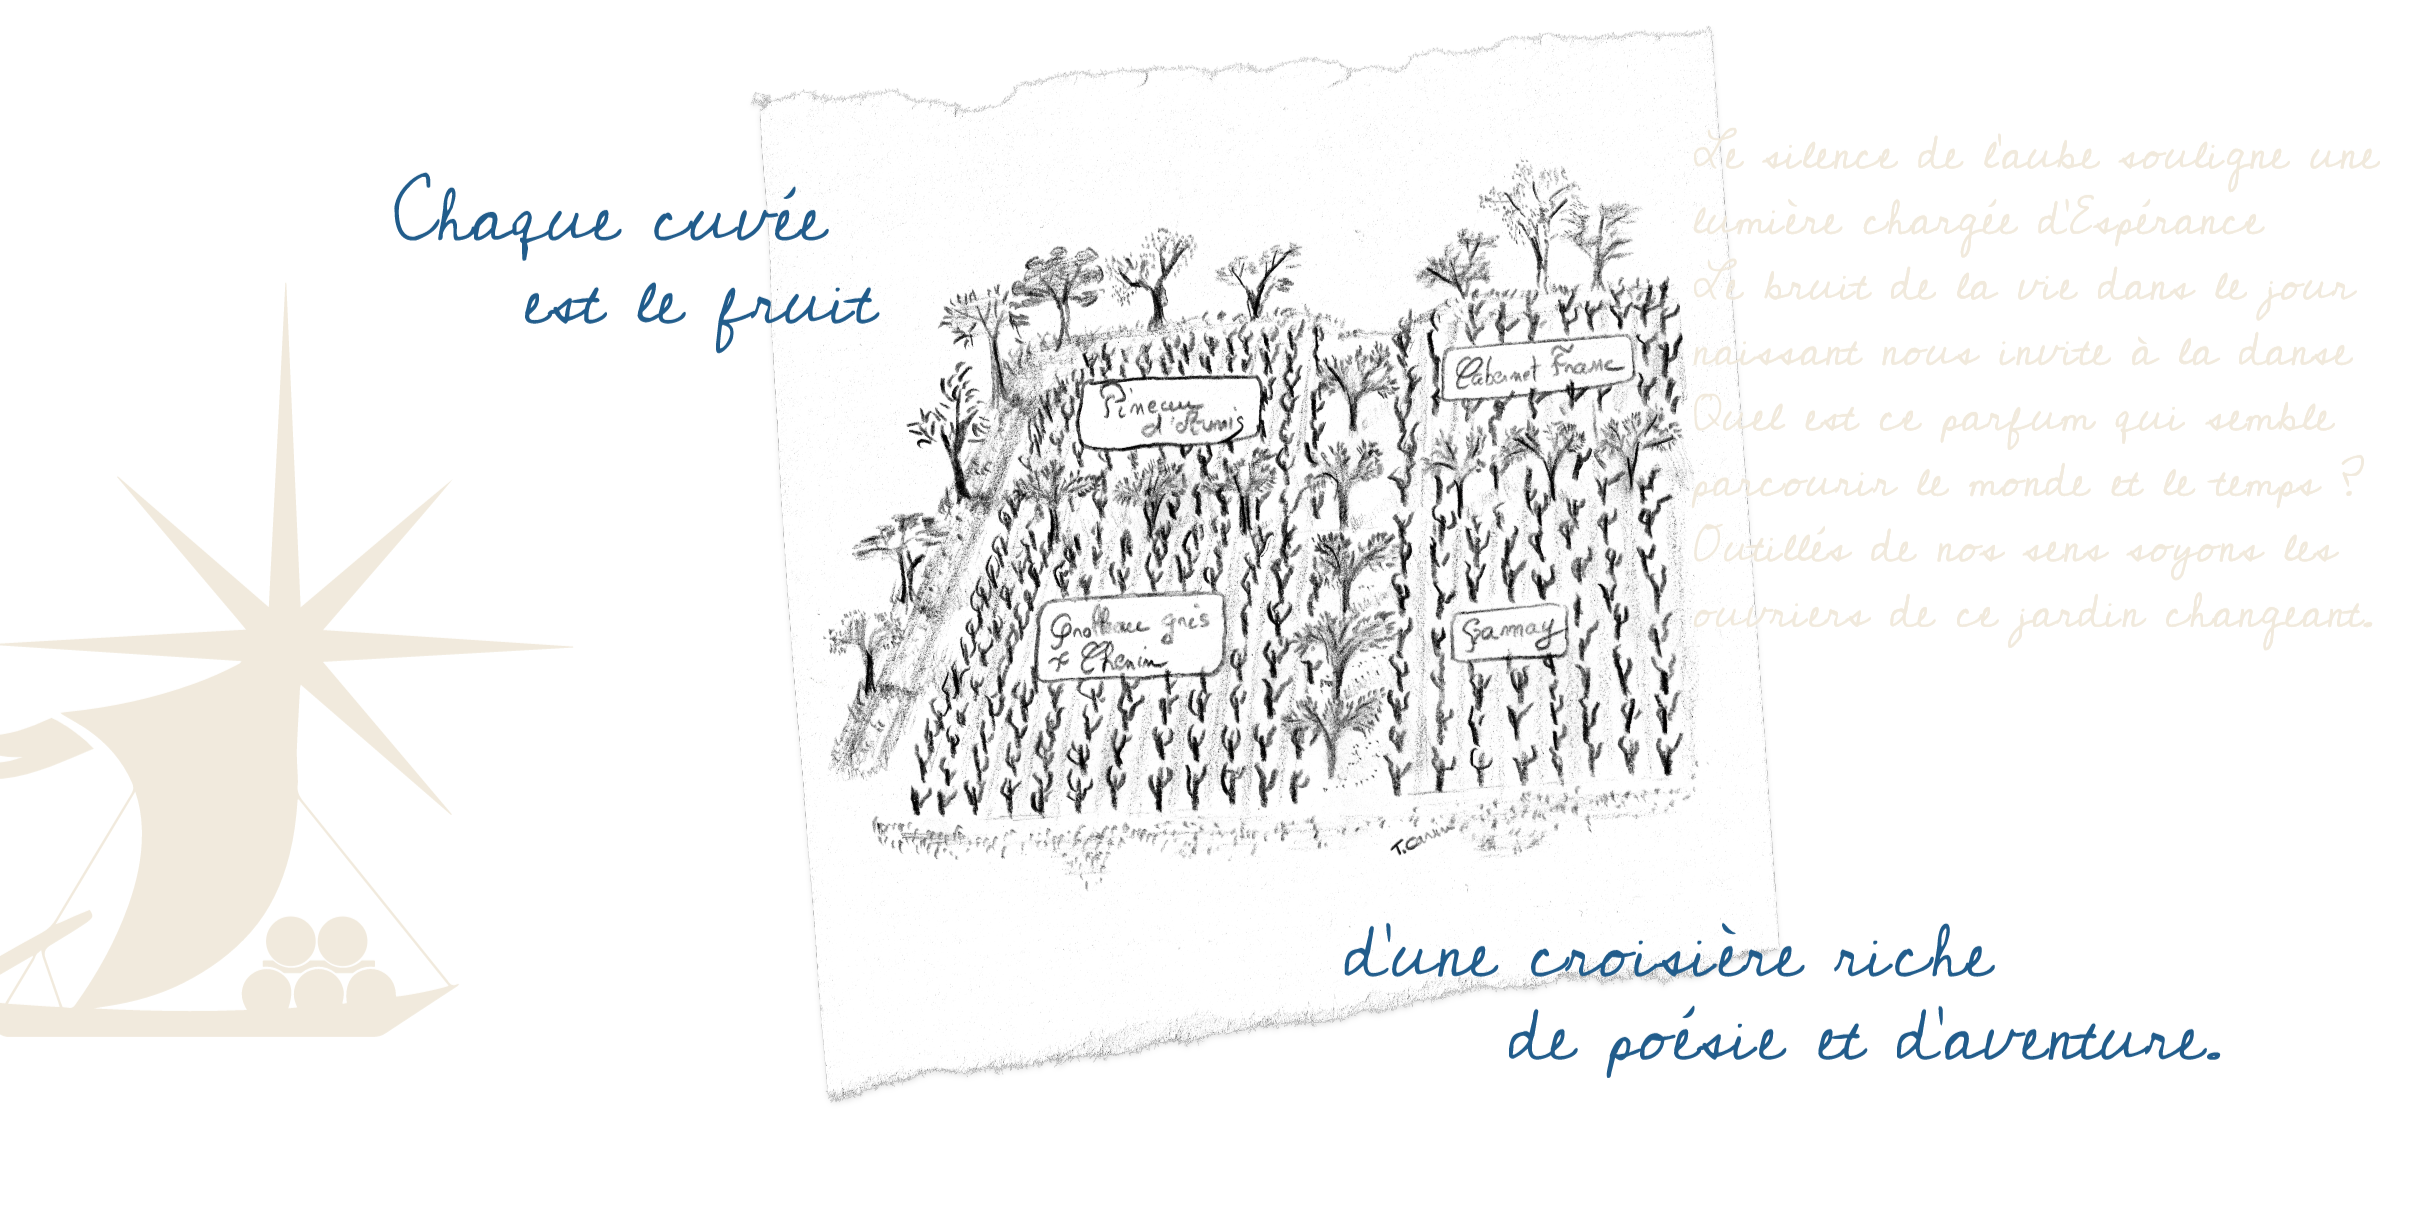 Chaque cuvée
est le fruit
Le silence de l'aube souligne une
lumière chargée d'Espérance
Le bruit de la vie dans le jour
naissant nous invite à la danse
Quel est ce parfum qui semble
parcourir le monde et le temps ?
Outillés de nos sens soyons les
ouvriers de ce jardin changeant.
Cabernet Franc
Pineau
d'Aunis
Grolleau gris
+ Chenin
Gamay
d'une croisière riche
de poésie et d'aventure.